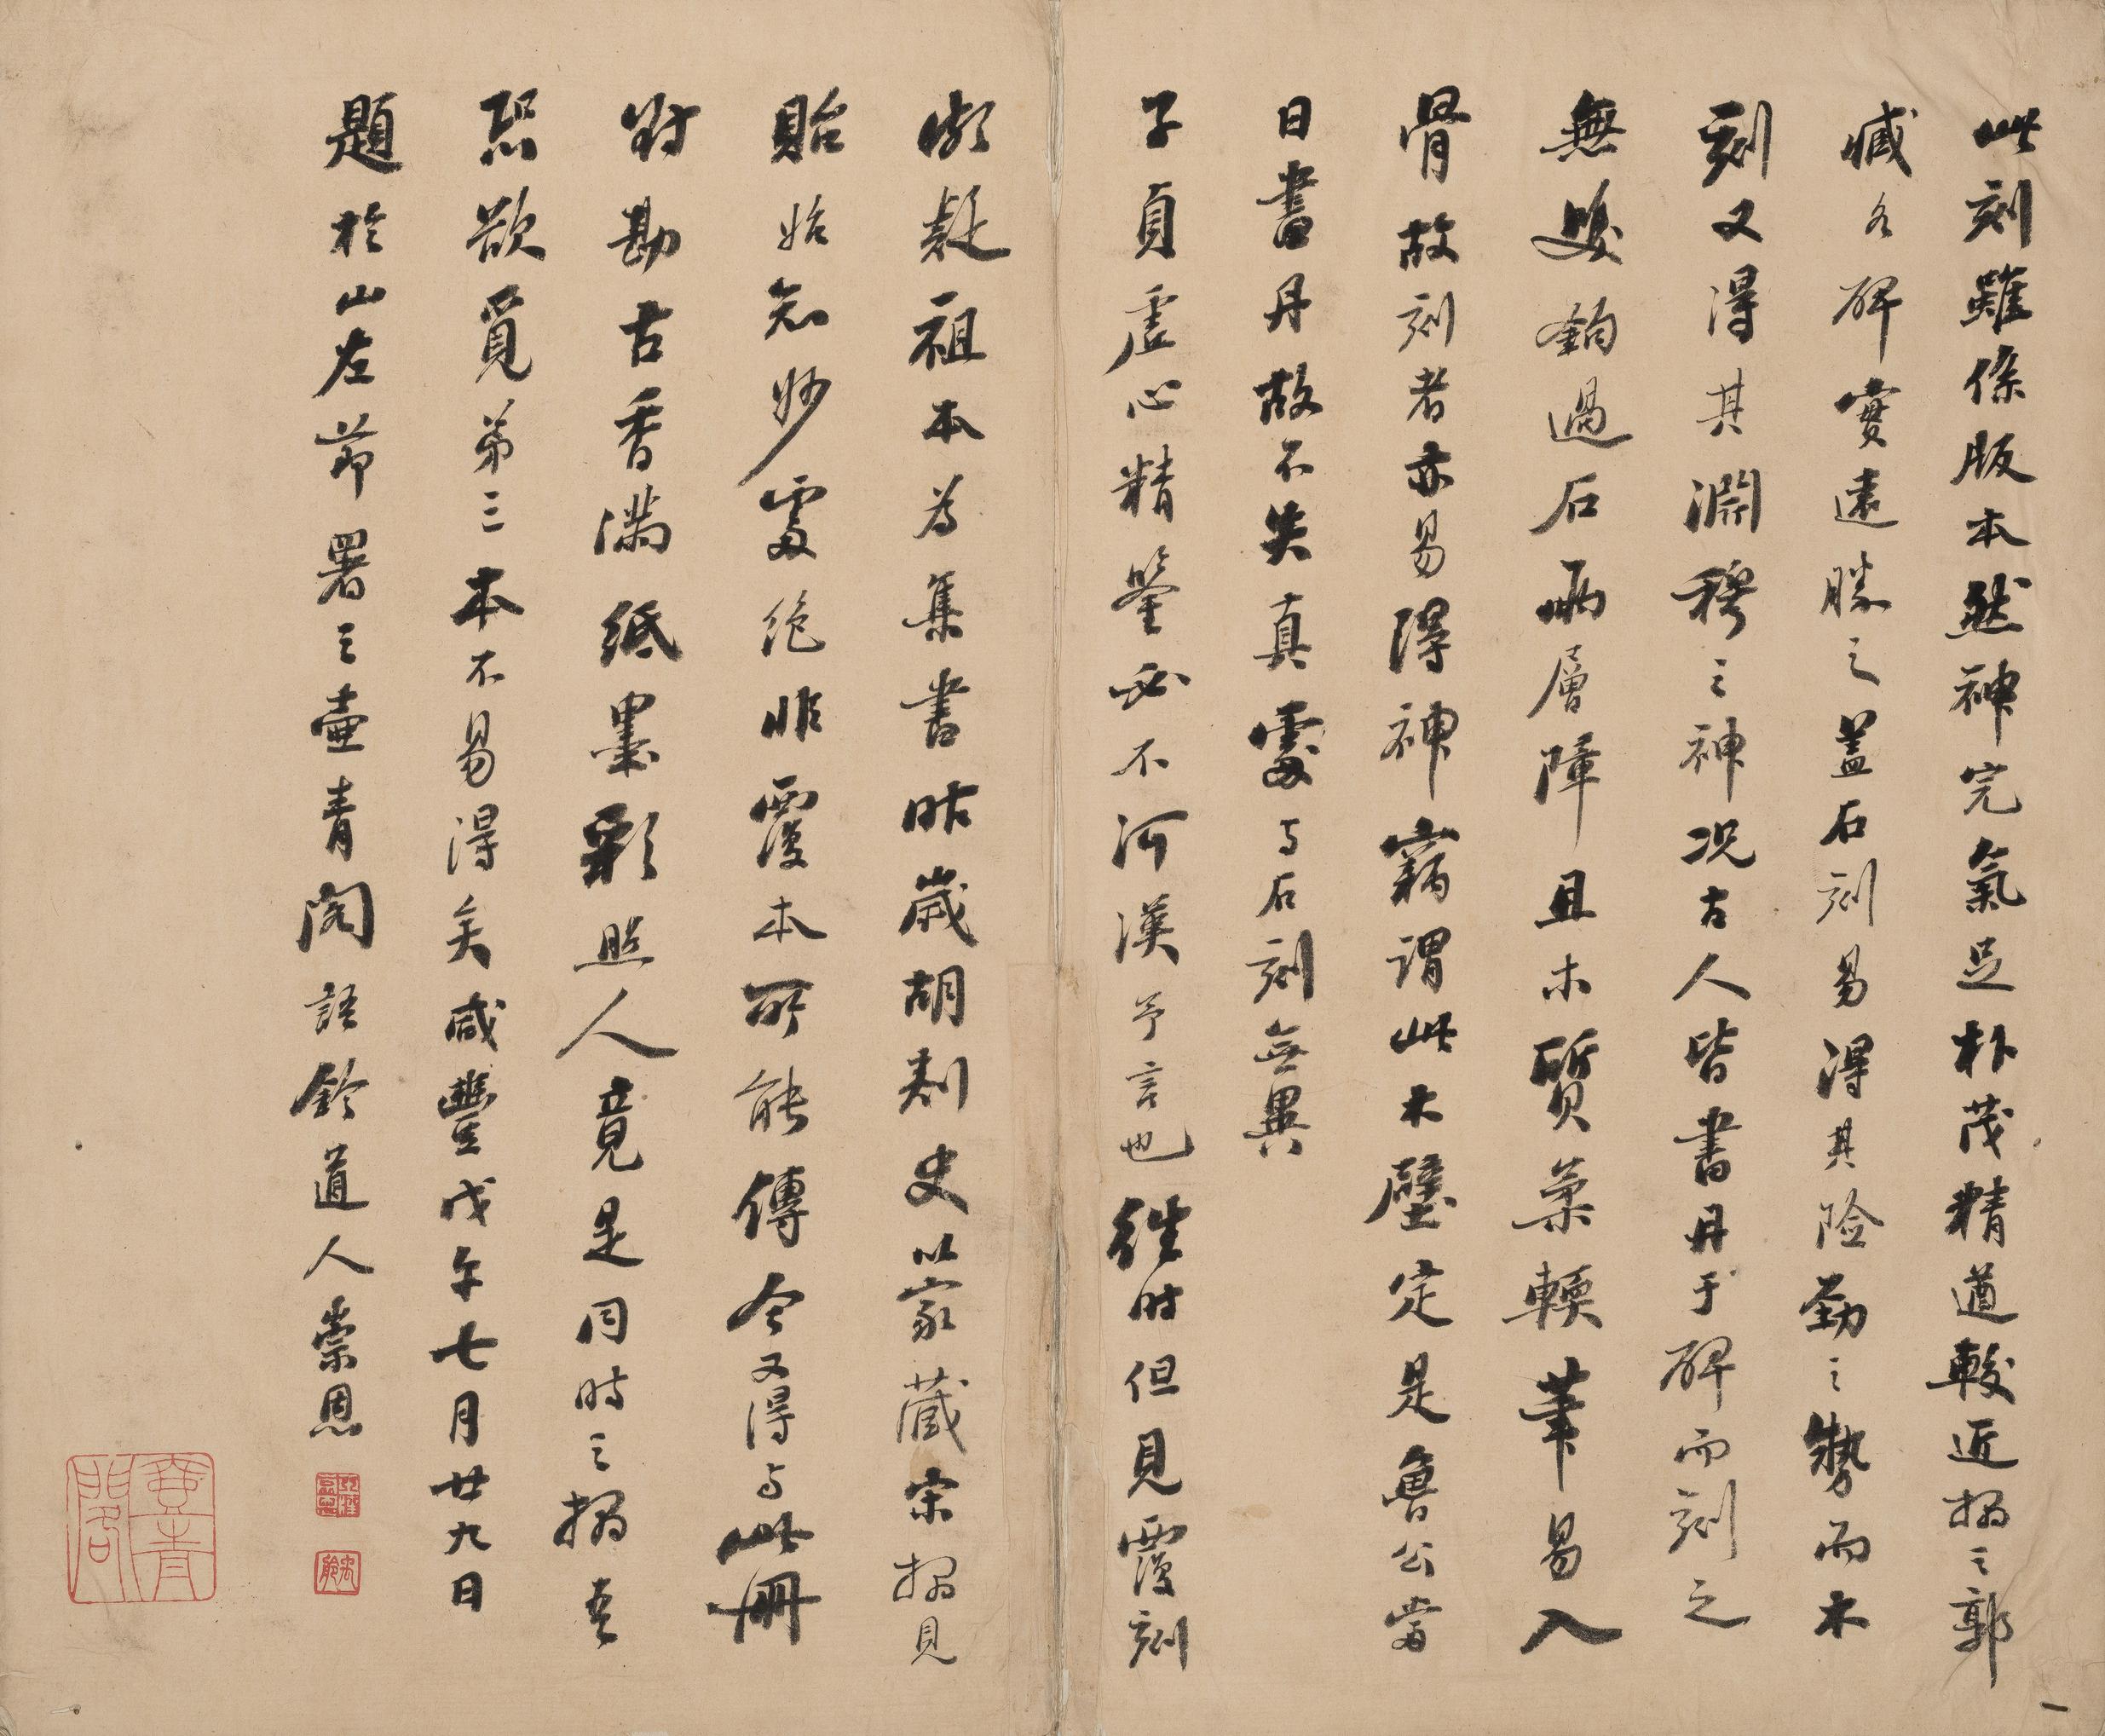 此刻雖係版本然神完氣足朴茂精遒較近搨之郭
臧各碑實遠勝之蓋石刻易得其險勁之勢而木
刻又得其淵穆之神況古人皆書丹于碑而刻之
無雙鉤過石兩層障且木質柔輭筆易入
骨故刻者亦易得神竊謂此木壁定是魯公當
日書丹故不失真處与石刻無異
子貞虛心精鑒必不河漢予言也往时但見覆刻
嘗疑祖本為集書昨歲胡刺史以家藏宋搨見
貽始知妙處絕非覆本所能傳今又得与此冊
對勘古香滿紙墨彩照人竟是同時之搨吾
恐欲覓第三本不易得矣咸豐戊午七月廿九日
題於山左節署之壺青閣語鈴道人崇恩
壺青閣